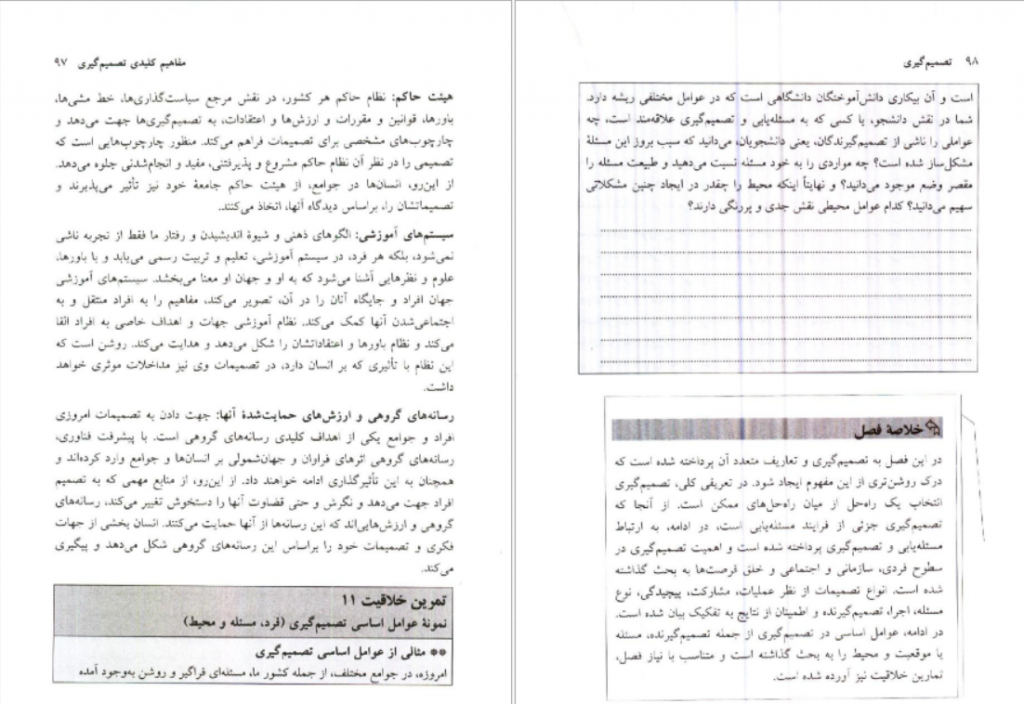 مفاهیم کلیدی تصمیم‌گیری ۹۷
هیئت حاکم: نظام حاکم هر کشور، در نقش مرجع سیاست‌گذاری‌ها، خط مشی‌ها،
باورها، قوانین و مقررات و ارزش‌ها و اعتقادات، به تصمیم‌گیری‌ها جهت می‌دهد و
چارچوب‌های مشخصی برای تصمیمات فراهم می‌کند. منظور چارچوب‌هایی است که
تصمیمی را در نظر آن نظام حاکم مشروع و پذیرفتنی، مفید و انجام‌شدنی جلوه می‌دهد.
از این‌رو، انسان‌ها در جوامع، از هیئت حاکم جامعهٔ خود نیز تأثیر می‌پذیرند و
تصمیماتشان را، براساس دیدگاه آنها، اتخاذ می‌کنند.
سیستم‌های آموزشی: الگوهای ذهنی و شیوهٔ اندیشیدن و رفتار ما فقط از تجربه ناشی
نمی‌شود، بلکه هر فرد، در سیستم آموزشی، تعلیم و تربیت رسمی می‌یابد و با باورها،
علوم و نظرهایی آشنا می‌شود که به او و جهان او معنا می‌بخشد. سیستم‌های آموزشی
جهان افراد و جایگاه آنان را در آن، تصویر می‌کند، مفاهیم را به افراد منتقل و به
اجتماعی‌شدن آنها کمک می‌کند. نظام آموزشی جهات و اهداف خاصی به افراد القا
می‌کند و نظام باورها و اعتقاداتشان را شکل می‌دهد و هدایت می‌کند. روشن است که
این نظام با تأثیری که بر انسان دارد، در تصمیمات وی نیز مداخلات موثری خواهد
داشت.
رسانه‌های گروهی و ارزش‌های حمایت‌شدهٔ آنها: جهت دادن به تصمیمات امروزی
افراد و جوامع یکی از اهداف کلیدی رسانه‌های گروهی است. با پیشرفت فناوری،
رسانه‌های گروهی اثرهای فراوان و جهان‌شمولی بر انسان‌ها و جوامع وارد کرده‌اند و
همچنان به این تأثیرگذاری ادامه خواهند داد. از این‌رو، از منابع مهمی که به تصمیم
افراد جهت می‌دهد و نگرش و حتی قضاوت آنها را دستخوش تغییر می‌کند، رسانه‌های
گروهی و ارزش‌هایی‌اند که این رسانه‌ها از آنها حمایت می‌کنند. انسان بخشی از جهات
فکری و تصمیمات خود را براساس این رسانه‌های گروهی شکل می‌دهد و پیگیری
می‌کند.
تمرین خلاقیت ۱۱
نمونهٔ عوامل اساسی تصمیم‌گیری (فرد، مسئله و محیط)
** مثالی از عوامل اساسی تصمیم‌گیری
امروزه، در جوامع مختلف، از جمله کشور ما، مسئله‌ای فراگیر و روشن به‌وجود آمده
۹۸ تصمیم‌گیری
است و آن بیکاری دانش‌آموختگان دانشگاهی است که در عوامل مختلفی ریشه دارد.
شما در نقش دانشجو، یا کسی که به مسئله‌یابی و تصمیم‌گیری علاقه‌مند است، چه
عواملی را ناشی از تصمیم‌گیرندگان، یعنی دانشجویان، می‌دانید که سبب بروز این مسئلهٔ
مشکل‌ساز شده است؟ چه مواردی را به خود مسئله نسبت می‌دهید و طبیعت مسئله را
مقصر وضع موجود می‌دانید؟ و نهایتاً اینکه محیط را چقدر در ایجاد چنین مشکلاتی
سهیم می‌دانید؟ کدام عوامل محیطی نقش جدی و پررنگی دارند؟
خلاصهٔ فصل
در این فصل به تصمیم‌گیری و تعاریف متعدد آن پرداخته شده است که
درک روشن‌تری از این مفهوم ایجاد شود. در تعریفی کلی، تصمیم‌گیری
انتخاب یک راه‌حل از میان راه‌حل‌های ممکن است. از آنجا که
تصمیم‌گیری جزئی از فرایند مسئله‌یابی است، در ادامه، به ارتباط
مسئله‌یابی و تصمیم‌گیری پرداخته شده است و اهمیت تصمیم‌گیری در
سطوح فردی، سازمانی و اجتماعی و خلق فرصت‌ها به بحث گذاشته
شده است. انواع تصمیمات از نظر عملیات، مشارکت، پیچیدگی، نوع
مسئله، اجرا، تصمیم‌گیرنده و اطمینان از نتایج به تفکیک بیان شده است.
در ادامه، عوامل اساسی در تصمیم‌گیری از جمله تصمیم‌گیرنده، مسئله
یا موقعیت و محیط را به بحث گذاشته است و متناسب با نیاز فصل،
تمارین خلاقیت نیز آورده شده است.